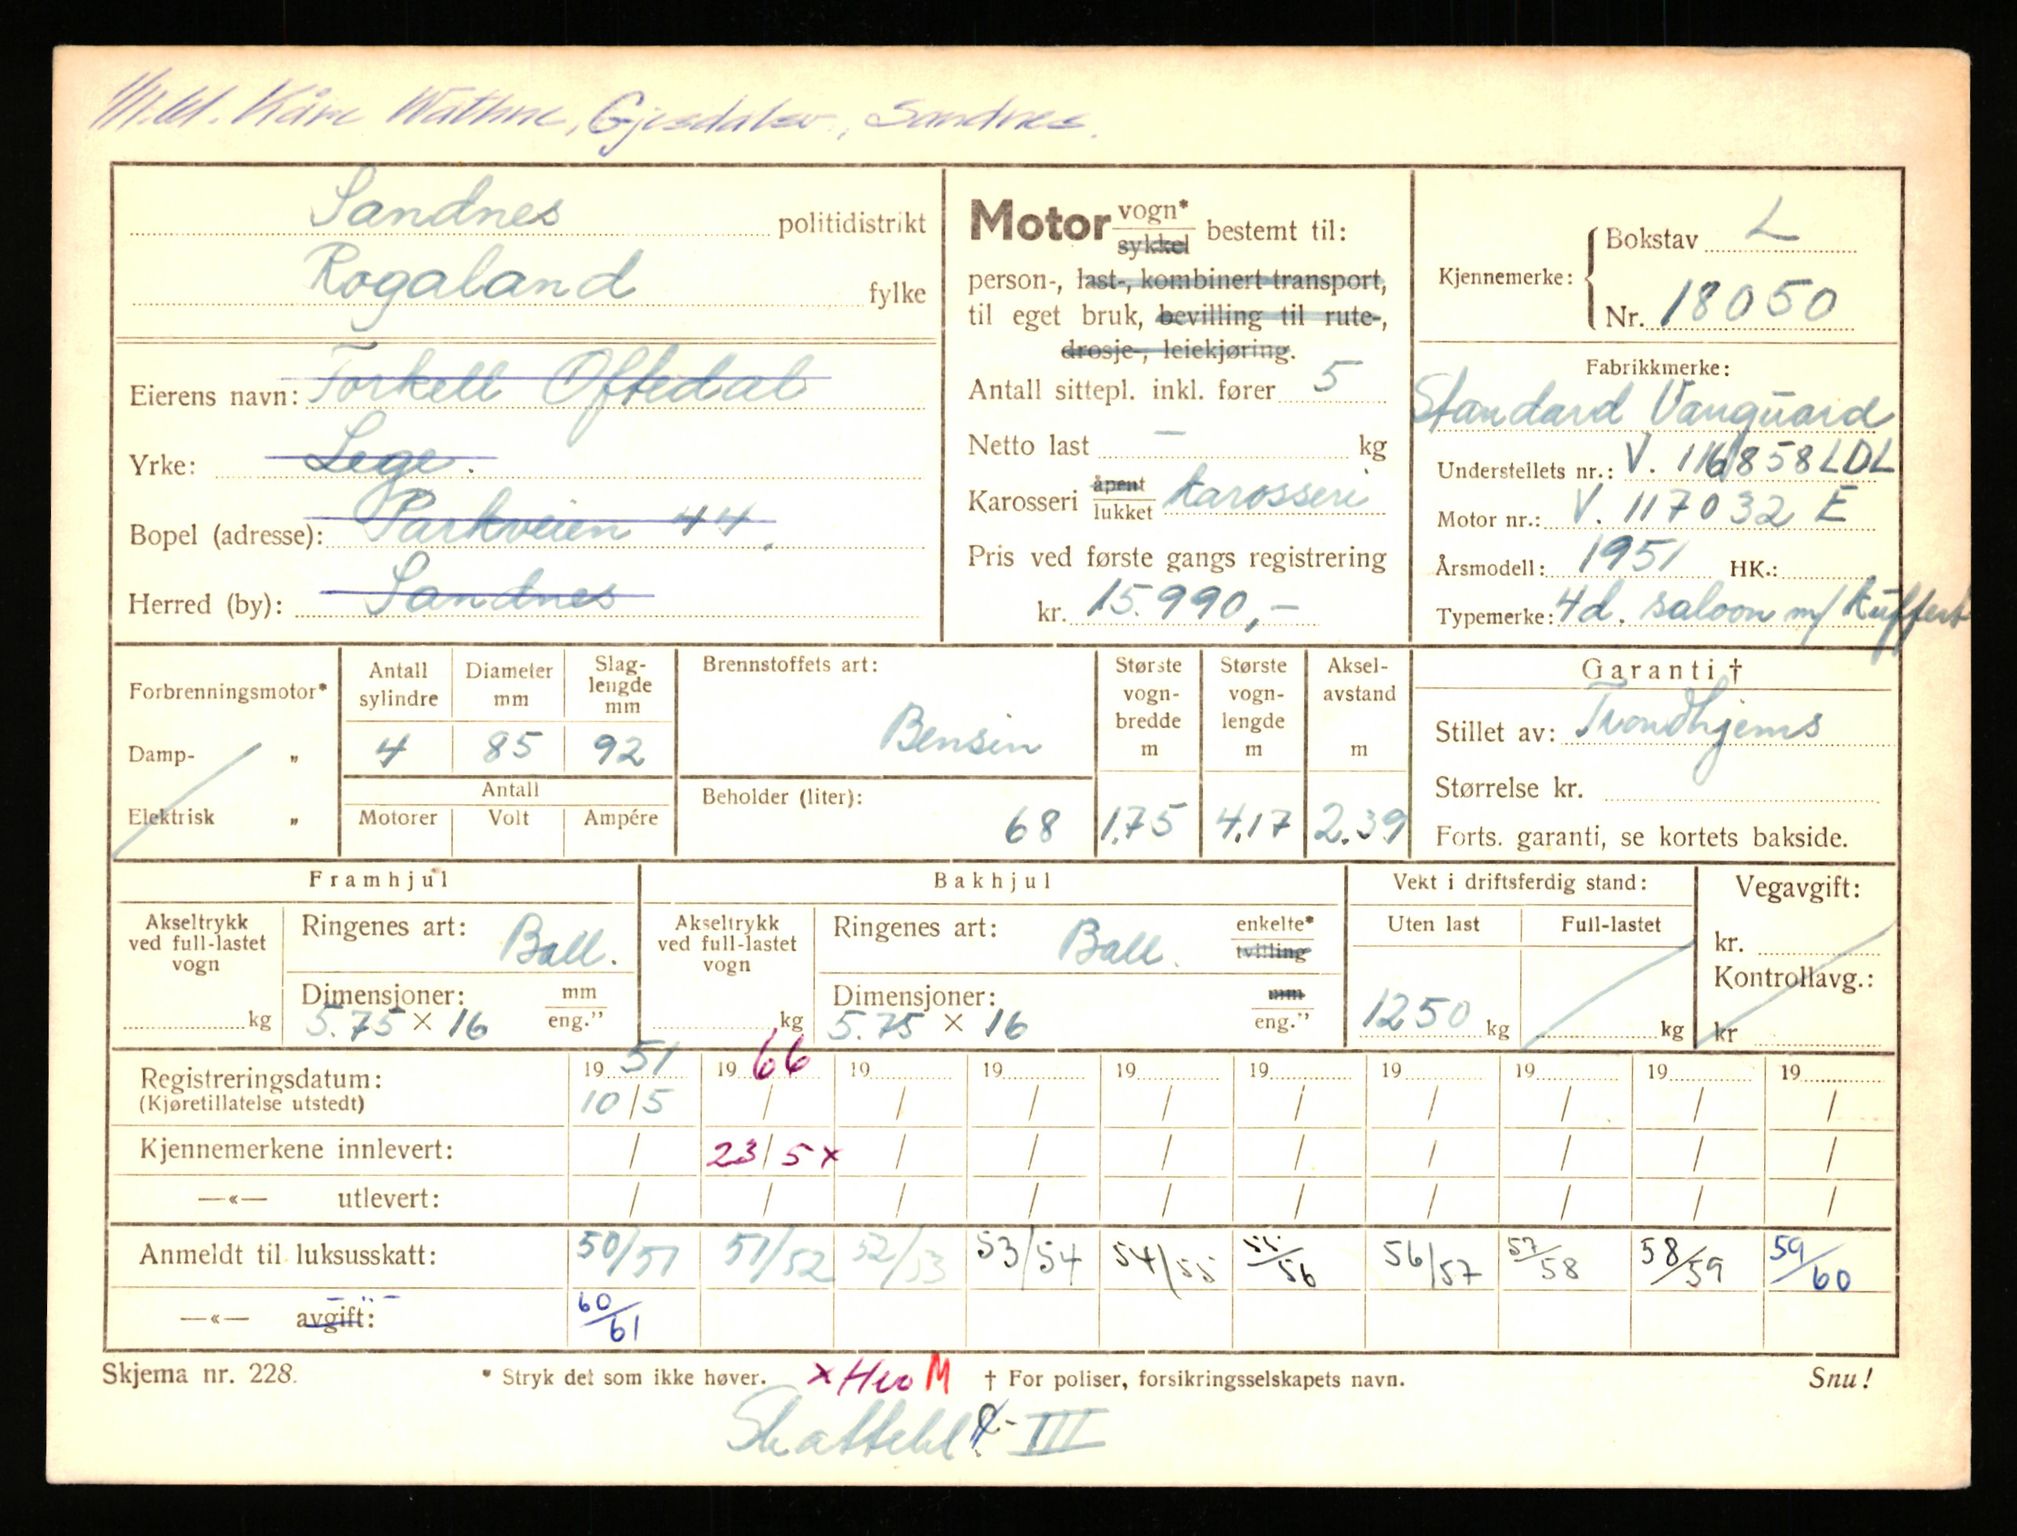 Kåre Wathne, Gjesdalsv., Sandnes.
Sandnes politidistrikt
Rogaland fylke
Eierens navn: Torkell Oftedal
Yrke: Lege.
Bopel (adresse): Parkveien 44.
Herred (by): Sandnes
Motor vogn* sykkel bestemt til:
person-, last-, kombinert transport,
til eget bruk, bevilling til rute-,
drosje-, leiekjøring.
Antall sittepl. inkl. fører 5
Netto last — kg
Karosseri åpent lukket karosseri
Pris ved første gangs registrering
kr. 15.990,-
Kjennemerke: Bokstav L
Nr. 18050
Fabrikkmerke:
Standard Vanguard
Understellets nr.: V. 116858LDL
Motor nr.: V. 117032 E
Årsmodell: 1951 HK.:
Typemerke: 4d. saloon m/ kuffert
Forbrenningsmotor*
Damp- "
Elektrisk "
Antall sylindre Diameter mm Slag-lengde mm
4 85 92
Antall
Motorer Volt Ampére
Brennstoffets art:
Bensin
Beholder (liter):
68
Største vogn-bredde m Største vogn-lengde m Aksel-avstand m
1.75 4.17 2.39
Garanti †
Stillet av: Trondhjems
Størrelse kr.
Forts. garanti, se kortets bakside.
Framhjul
Akseltrykk ved full-lastet vogn
kg
Ringenes art: Ball.
Dimensjoner: mm
5.75 × 16 eng."
Bakhjul
Akseltrykk ved full-lastet vogn
kg
Ringenes art: Ball. enkelte* tvilling
Dimensjoner: mm
5.75 × 16 eng."
Vekt i driftsferdig stand:
Uten last Full-lastet
1250 kg kg
Vegavgift:
kr.
Kontrollavg.:
kr
Registreringsdatum: 19 51 19 66 19 19 19 19 19 19 19 19
(Kjøretillatelse utstedt) 10/5 / / / / / / / / /
Kjennemerkene innlevert: / 23/5 x / / / / / / / /
—«— utlevert: / / / / / / / / / /
Anmeldt til luksusskatt: 50/51 51/52 52/53 53/54 54/55 55/56 56/57 57/58 58/59 59/60
—«— avgift: 60/61
Skjema nr. 228. * Stryk det som ikke høver. x M † For poliser, forsikringsselskapets navn. Snu!
III